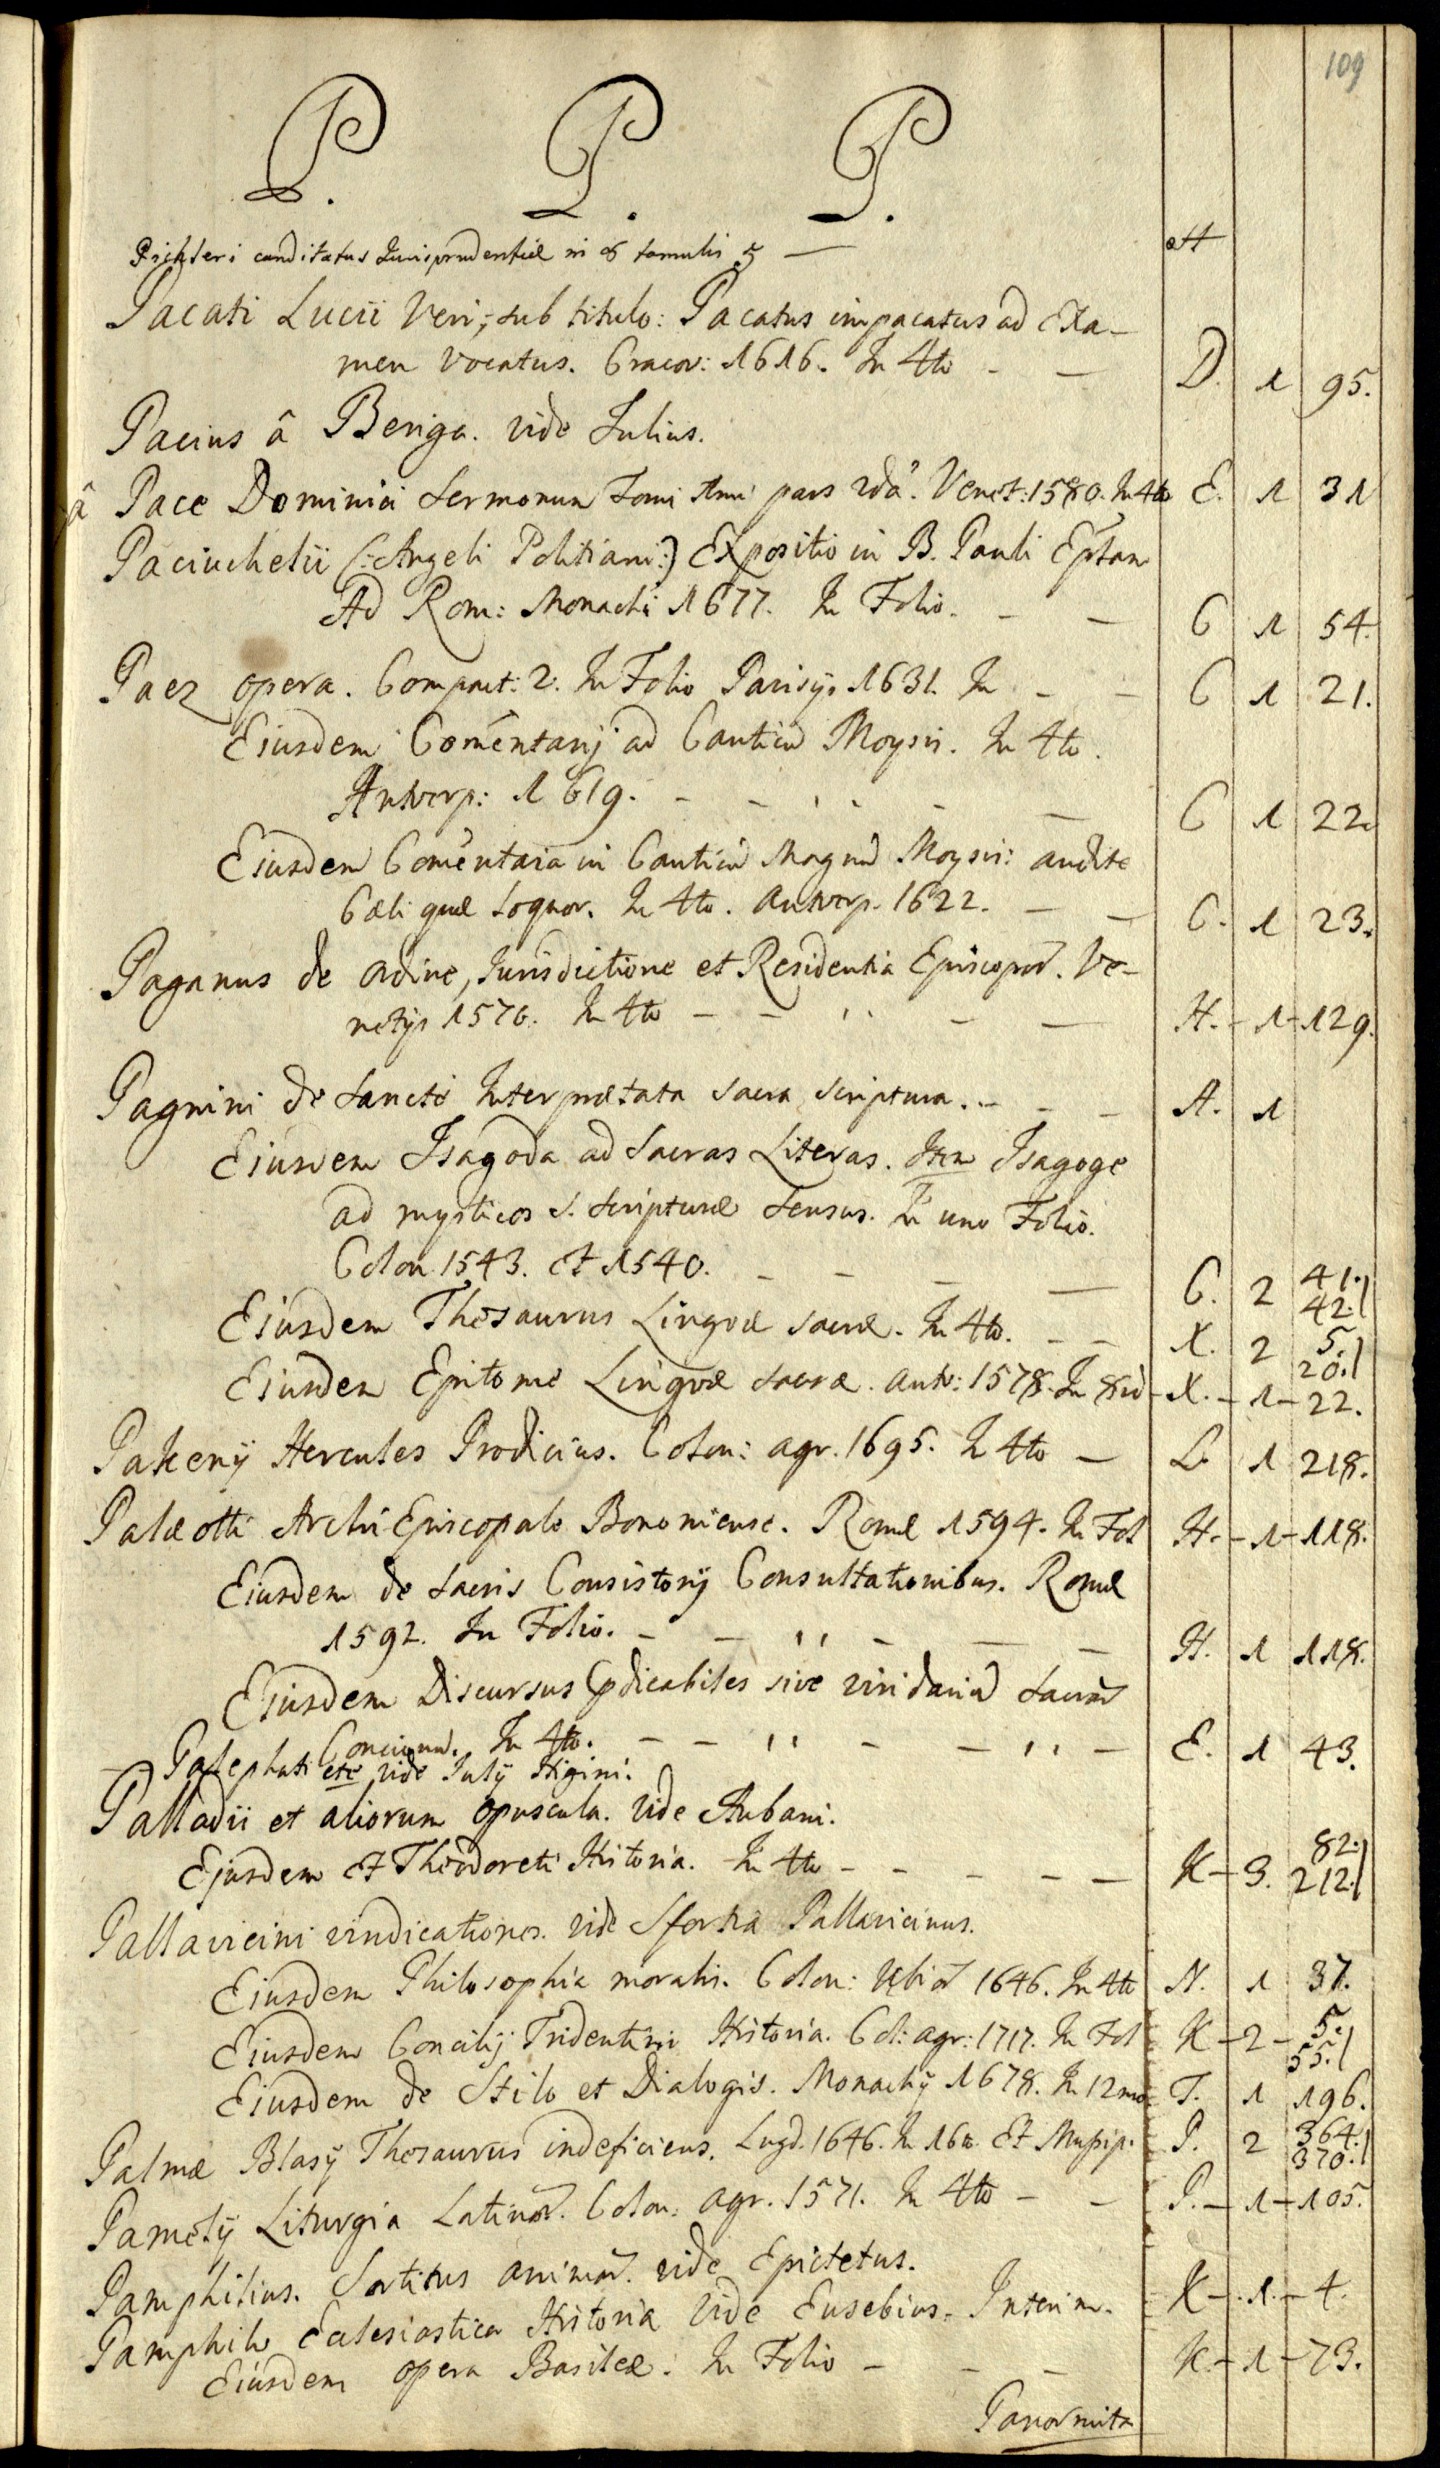 109
P. P. P.
Pichleri canditatus Jurisprudentiæ in 8 tomulis 5 —
Pacati Lucii Veri, sub titulo: Pacatus impacatus ad Exa-
men vocatus. Cracov: 1616. In 4to - — D. 1 95.
Pacius â Beriga. vide Julius.
â Pace Dominici Sermonum Tomi 1mi pars 2da. Venet: 1580. In 4to E. 1 31
Paciuchelii (: Angeli Politiani :) Expositio in B. Pauli Eptam
Ad Rom: Monachi 1677. In Folio. - — C 1 54.
Paez opera. Compact: 2. In Folio Parisijs 1631. In - - C 1 21.
Eiusdem Comentarij ad Canticu Moysis. In 4to.
Antverp: 1619. - - - — C 1 22
Eiusdem Comentaria in Canticu Magnu Moysis: audite
Cæli quæ loquor. In 4to. Antverp. 1622. — — C. 1 23.
Paganus de ordine, Jurisdictione et Residentia Episcopor. Ve-
netijs 1576. In 4to - - - — H. - 1 - 129.
Pagnini de Sancte Interprætata sacra scriptura. - - - A. 1
Eiusdem Isagoda ad Sacras Literas. Item Isagoge
ad mysticos S. Scripturæ Sensus. In uno Folio.
Colon 1543. et 1540. - - - — C. 2 41. 42.
Eiusdem Thesaurus Linguæ sacræ. In 4to. - - X. 2 5. 20.
Eiusdem Epitome Linguæ sacræ. Antv: 1578. In 8vo - X. - 1 - 22.
Pakenij Hercules Prodicius. Colon: agr. 1695. In 4to — L. 1 218.
Palæotti Archi Episcopale Bononiense. Romæ 1594. In Fol H. - 1 - 118.
Eiusdem de Sacris Consistorij Consultationibus. Romæ
1592. In Folio. - - - — - H. 1 118.
Eiusdem Discursus Pdicabiles sive viridariu Sacrar
Concionu. In 4to. - - - - - E. 1 43.
— Palephati etc vide Julij Higini.
Palladii et aliorum opuscula. Vide Aubani.
Ejusdem et Theodoreti Historia. In 4to - - - - — K - 3. 82. 212.
Pallavicini vindicationes. vide Sfortia Pallavicinus.
Eiusdem Philosophia moralis. Colon: Ubior 1646. In 4to N. 1 37.
Eiusdem Concilij Tridentini Historia. Col: agr: 1717. In Fol K - 2 - 5. 55.
Eiusdem de Stilo et Dialogis. Monachij 1678. In 12mo T. 1 196.
Palmæ Blasij Thesaurus indeficiens. Lugd. 1646. In 16to. Et Mussip: P. 2 364. 370.
Pamelij Liturgia Latinor. Colon: agr. 1571. In 4to - - P. - 1 - 105.
Pamphilius. Sortitus animar. vide Epictetus.
Pamphili Eclesiastica Historia vide Eusebius. Interim. K - 1. - 4.
Eiusdem opera Basileæ. In Folio - - — K. - 1 - 73.
Panormita